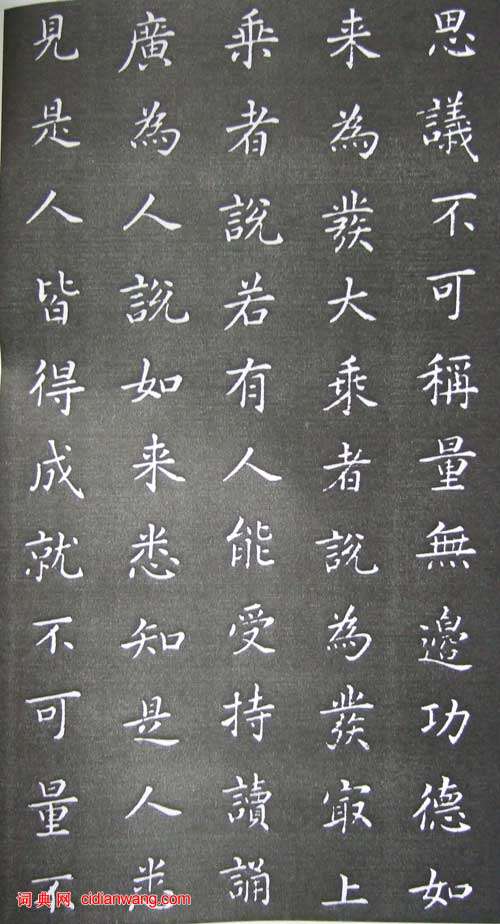 思議不可稱量無邊功德如
来為發大乗者說為發冣上
乗者說若有人能受持讀誦
廣為人說如来悉知是人悉
見是人皆得成就不可量不
词典网 cidianwang.com